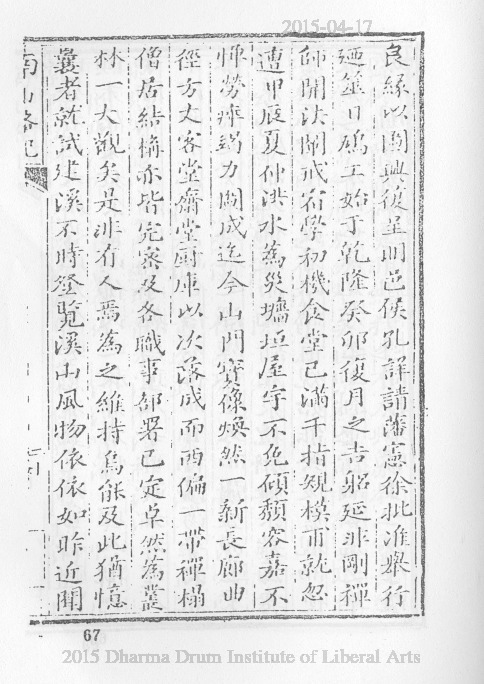 2015-04-17
良緣以圖興復呈明邑侯孔詳請藩憲徐批准舉行
廼筮日鳩工始于乾隆癸卯復月之吉躬延非剛禪
師開法闡戒宿學初機食堂已滿千指規模甫就忽
遭甲辰夏仲洪水為災墻垣屋宇不免傾頹容嘉不
憚勞瘁竭力鬮成迄今山門寶像煥然一新長廊曲
徑方丈客堂齋堂厨庫以次落成而西偏一帶禪榻
僧居結構亦皆完密及各職事部署已定卓然為叢
林一大觀矣是非有人焉為之維持烏能及此猶憶
曩者就試建溪不時登覽溪山風物依依如昨近聞
南山畧記
67
2015 Dharma Drum Institute of Liberal Arts